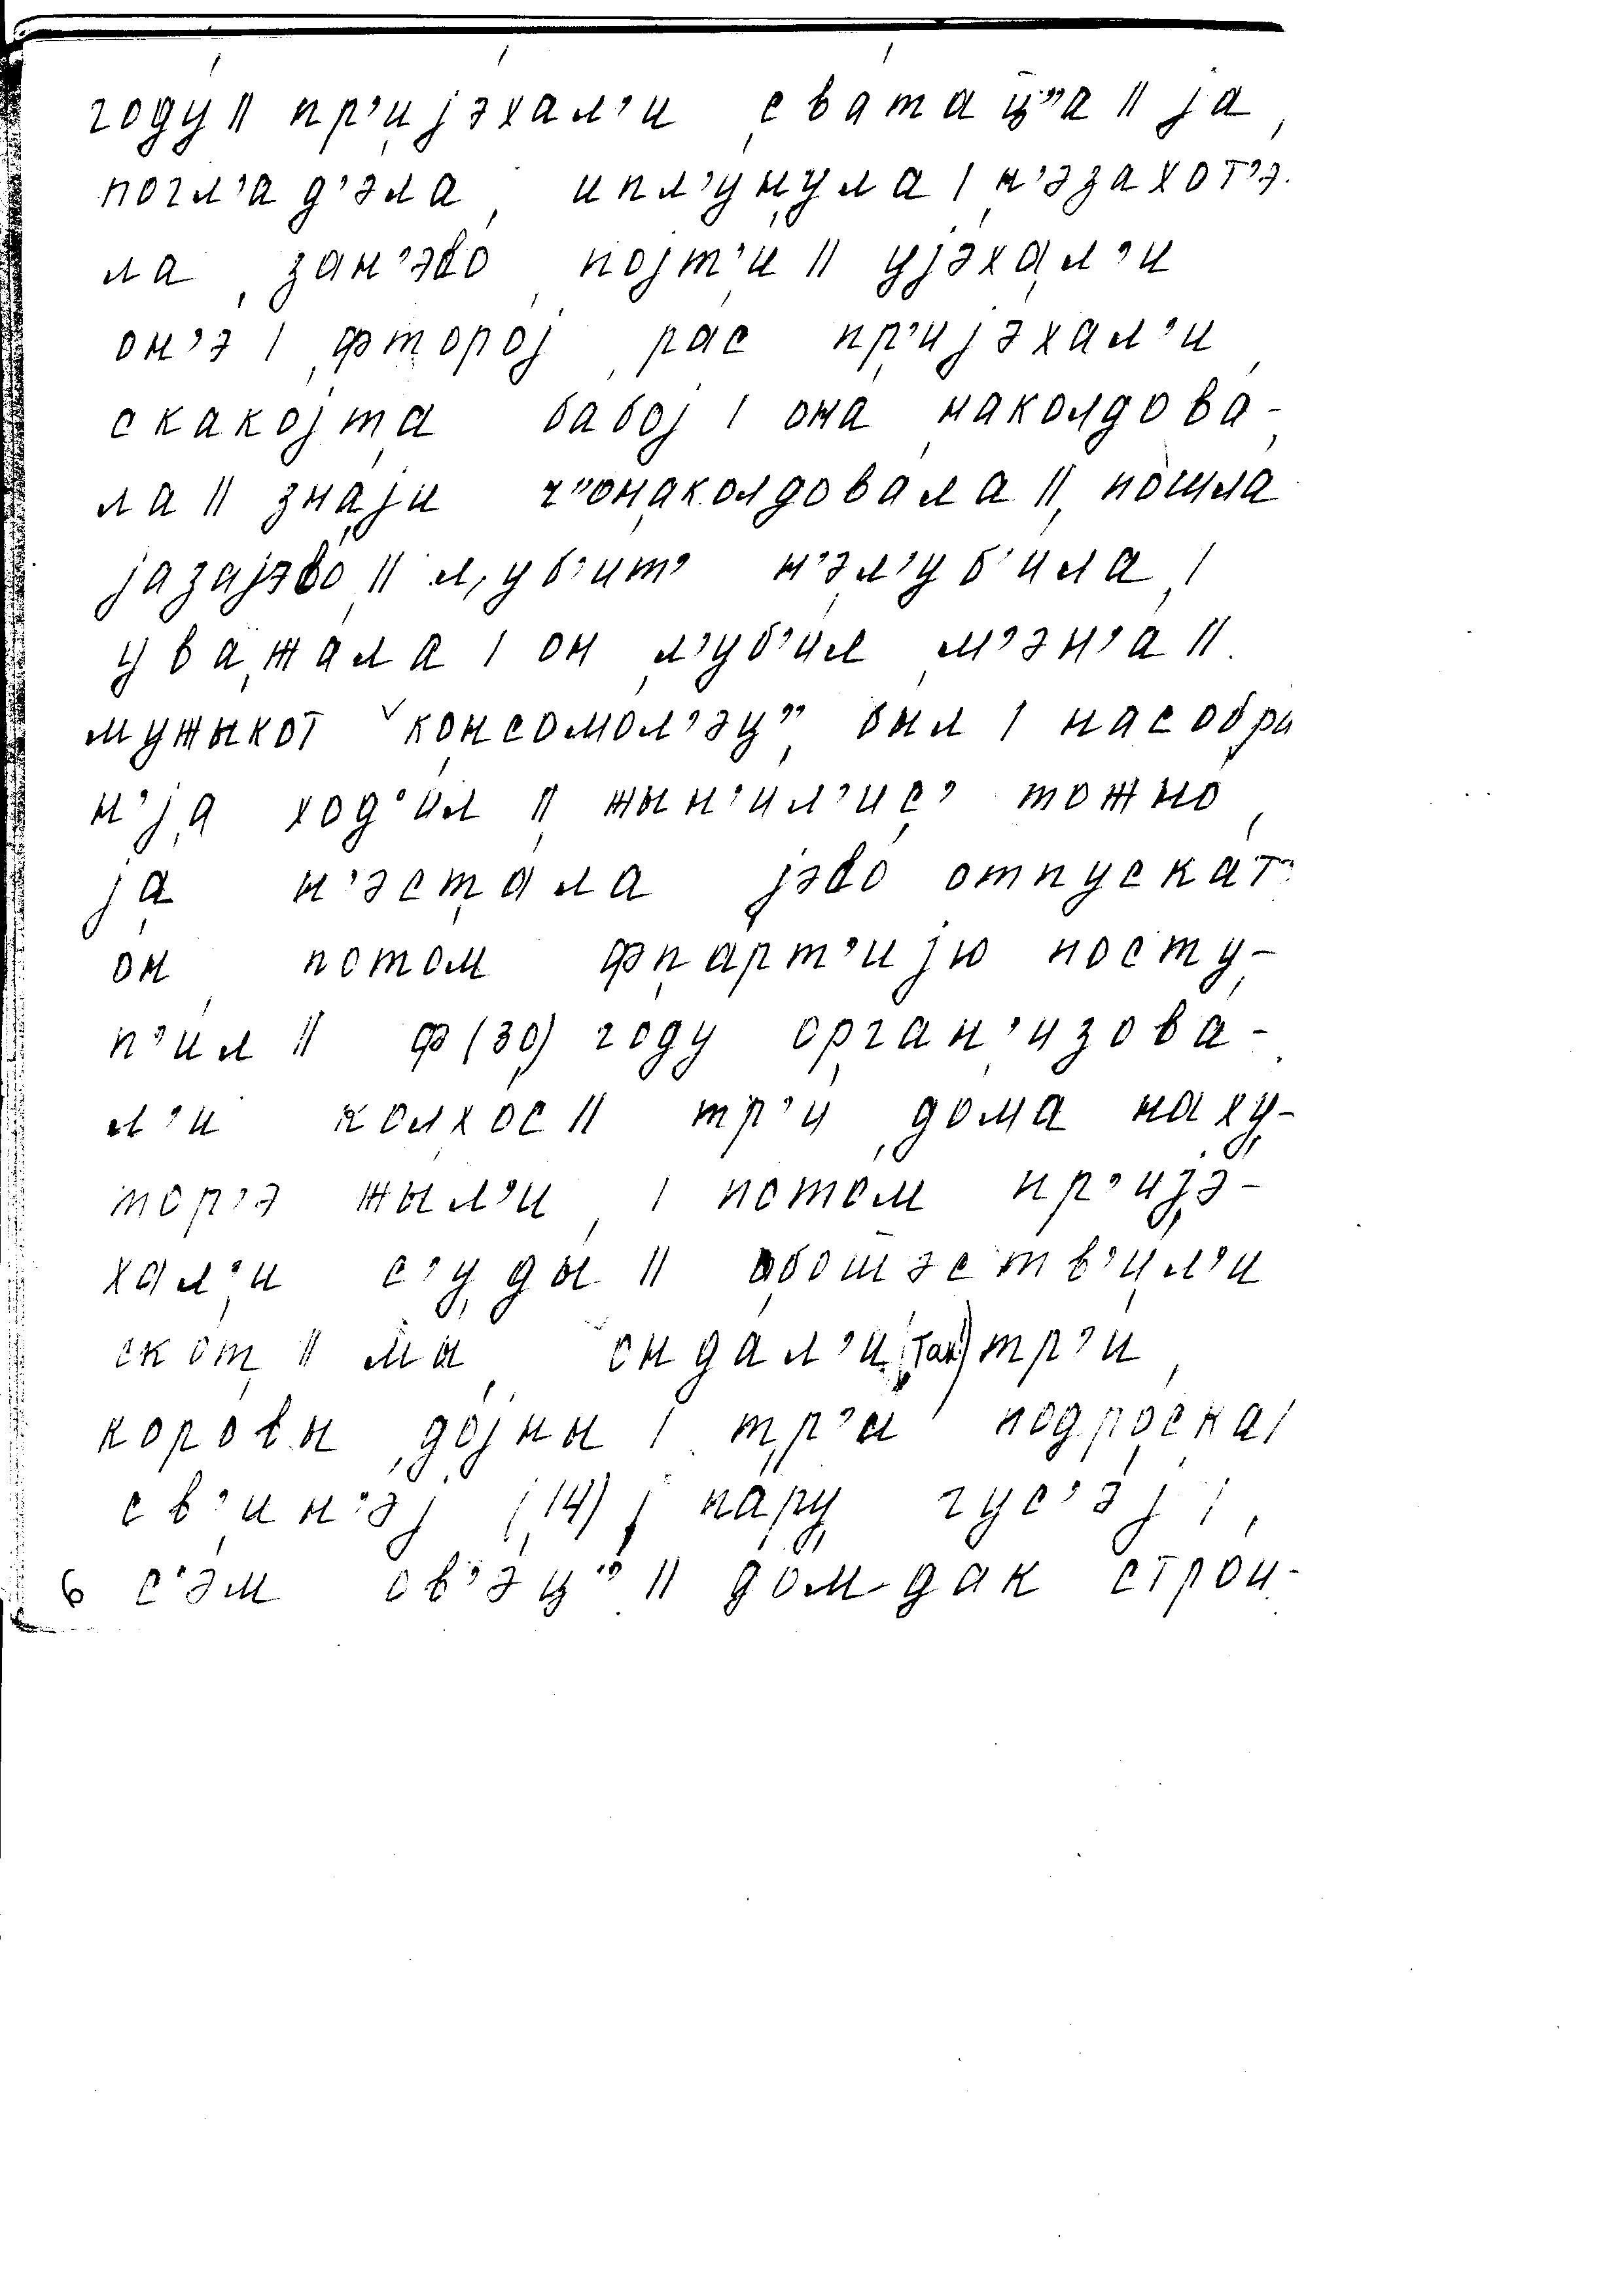 году́ || пр’ијэ́хал’и сва́тацц”а || ја
погл’ад’э́ла ипл’у́нула | н’эзахот’э́-
ла зан’эво́ појт’и́ || ујэ́хал’и
он’э́ | фторо́ј рас пр’ијэ́хал’и
скако́јта ба́бој | она́ наколдова́-
ла || зна́ји ч”онаколдова́ла || пошла́
јазајэво́ || л’уб’и́т’ н’эл’уб’и́ла |
уважа́ла | он л’уб’и́л м’эн’а́ ||
мужыко́т консомо́л’эц” был | насобра́
н’ја ход’и́л || жын’и́л’ис’ тожно́
ја н’эста́ла јэво́ отпуска́т’
он пото́м фпа́рт’ијю посту-
п’и́л || ф (30) году́ орган’изова́-
л’и колхо́с || тр’и до́ма наху́-
тор’э жы́л’и | пото́м пр’ијэ́-
хал’и с’уды́ || обошэств’и́л’и
скот || мы онда́л’и (так) тр’и
коро́вы до́јны | тр’и подро́ска |
св’ин’э́ј (14) | па́ру гус’э́ј |
6 с’эм ов’э́ц” || дом дак стро́и-